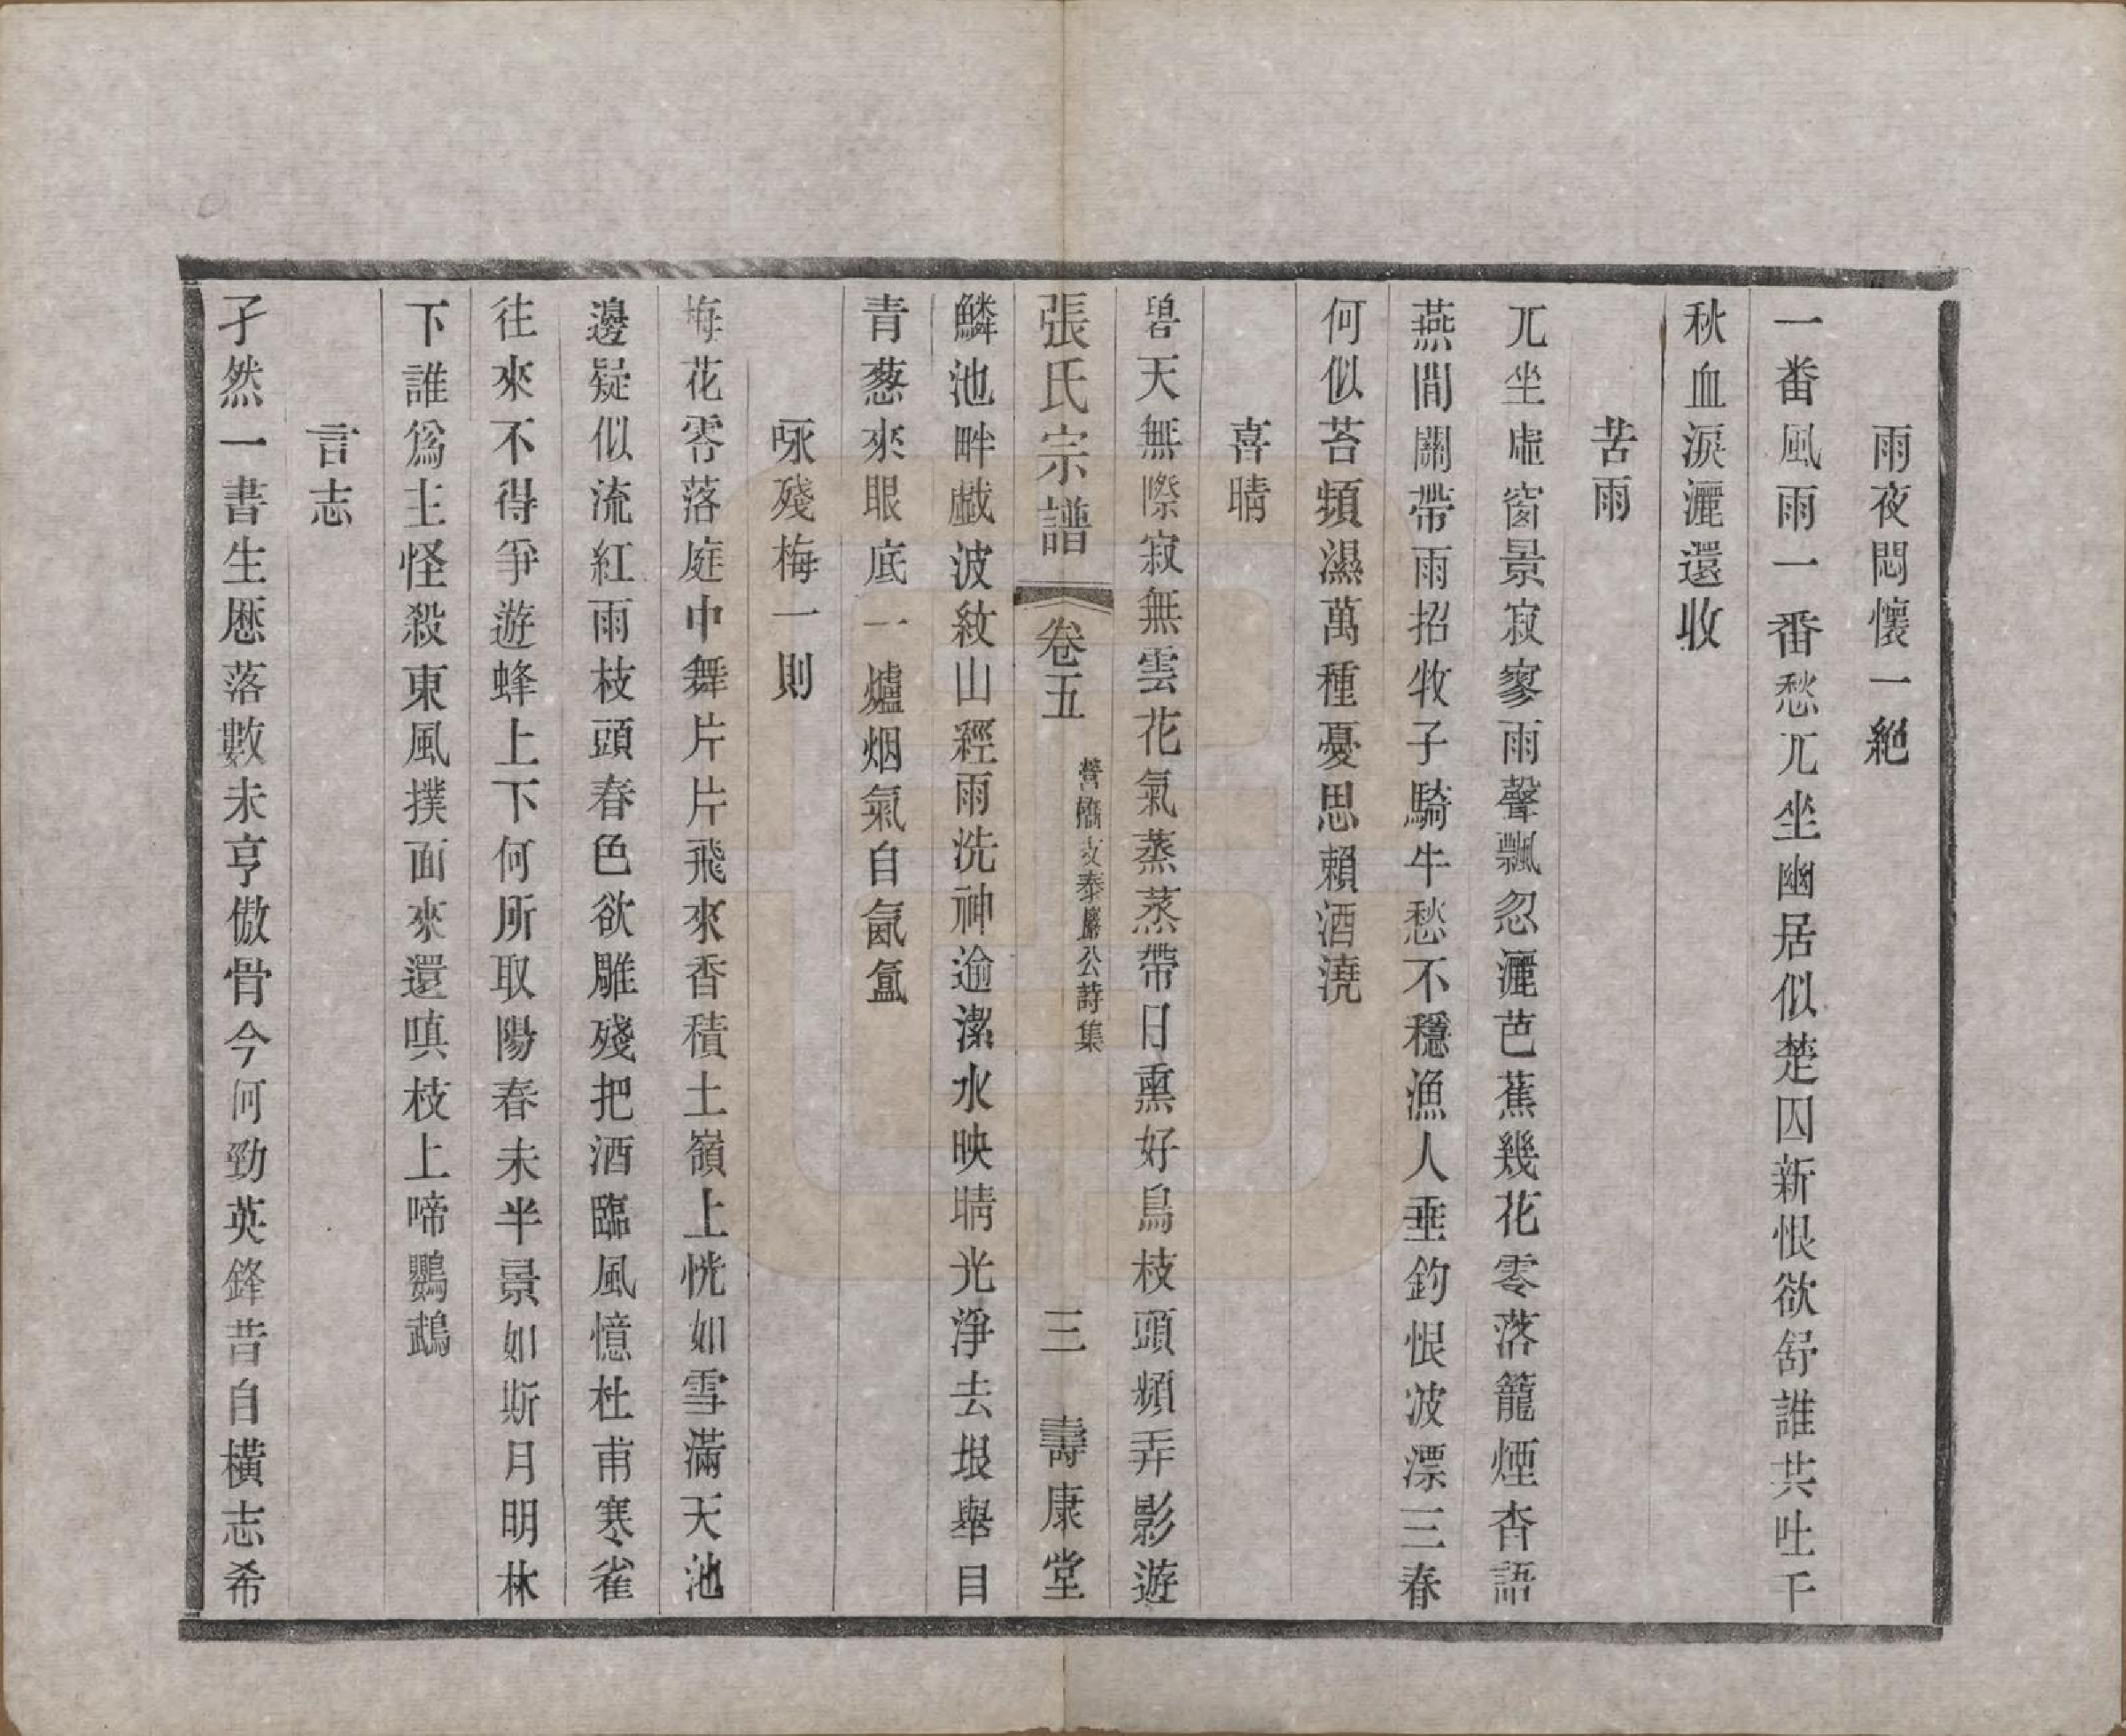 雨夜悶懷一絕
一番風雨一番愁兀坐幽居似楚囚新恨欲舒誰共吐千
秋血淚灑還收
苦雨
兀坐虛窗景寂寥雨聲飄忽灑芭蕉幾花零落籠煙杏語
燕間關帶雨招牧子騎牛愁不穩漁人垂釣恨波漂三春
何似苔頻濕萬種憂思賴酒澆
喜晴
碧天無際寂無雲花氣蒸蒸帶日熏好鳥枝頭頻弄影遊
張氏宗譜 卷五 營橋支泰巖公詩集 三 壽康堂
鱗池畔戲波紋山經雨洗神逾潔水映晴光淨去垠舉目
青蔥來眼底一爐烟氣自氤氳
咏殘梅一則
梅花零落庭中舞片片飛來香積土嶺上恍如雪滿天池
邊疑似流紅雨枝頭春色欲雕殘把酒臨風憶杜甫寒雀
往來不得爭遊蜂上下何所取陽春未半景如斯月明林
下誰爲主怪殺東風撲面來還嗔枝上啼鸚鵡
言志
孑然一書生歷落數未亨傲骨今何勁英鋒昔自橫志希